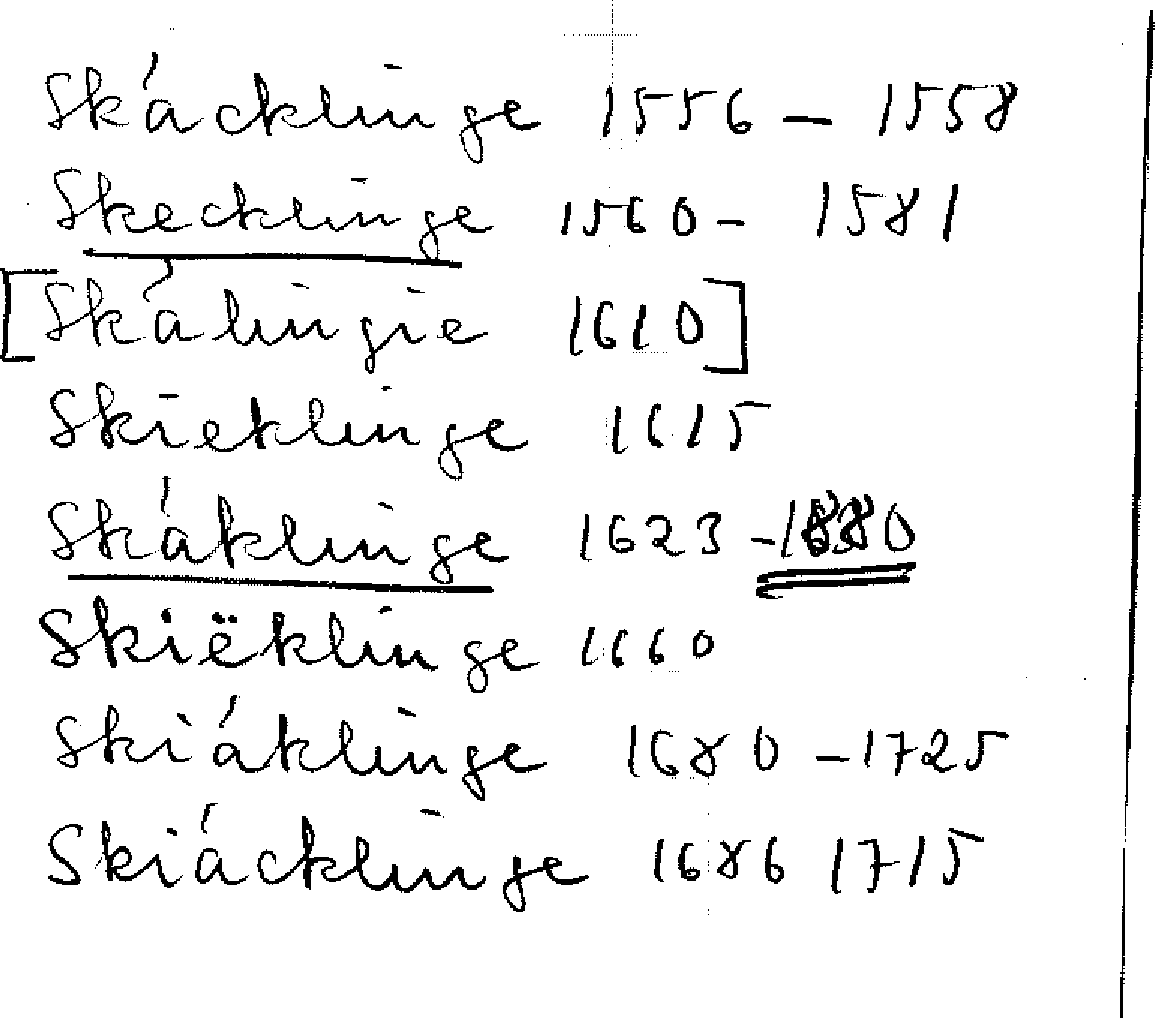 Skácklinge 1556 – 1558
Skecklinge 1560 – 1581
[Skálingie 1610]
Skieklinge 1615
Skáklinge 1623 –
Skiëklinge 1660
Skiáklinge 1680 – 1725
Skiácklinge 1686 1715